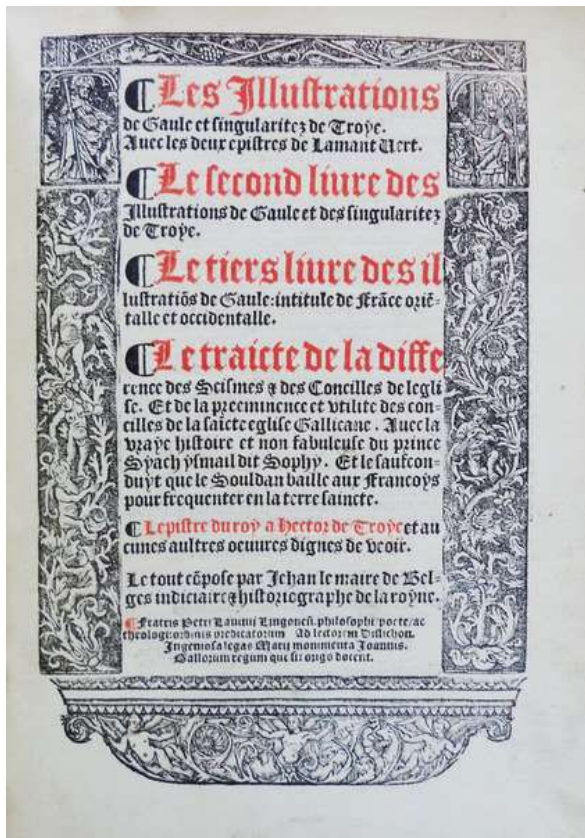 ¶Les Illustrations
de Gaule et singularitez de Troye.
Auec les deux epistres de Lamant Uert.
¶Le second liure des
Illustrations de Gaule et des singularitez
de Troye.
¶Le tiers liure des il
lustratiõs de Gaule: intitule de Frãce oriẽ-
talle et occidentalle.
¶Le traicte de la diffe
rence des Scismes & des Concilles de legli
se. Et de la preeminence et vtilite des con-
cilles de la saicte eglise Gallicane. Auec la
vraye histoire et non fabuleuse du prince
Syach ysmail dit Sophy. Et le saufcon-
duyt que le Souldan baille aux Francoys
pour frequenter en la terre saincte.
¶Lepistre du roy a Hector de Troye et au
cunes aultres oeuures dignes de veoir.
Le tout cõpose par Jehan le maire de Bel-
ges indiciaire & historiographe de la royne.
¶Fratris Petri Lauinii Lingonẽsi. philosophi poete/ac
theologi: ordinis predicatorum Ad lectorem Distichon.
Ingeniosa legas Marii monimenta Joannis.
Gallorum regum que sit origo docent.